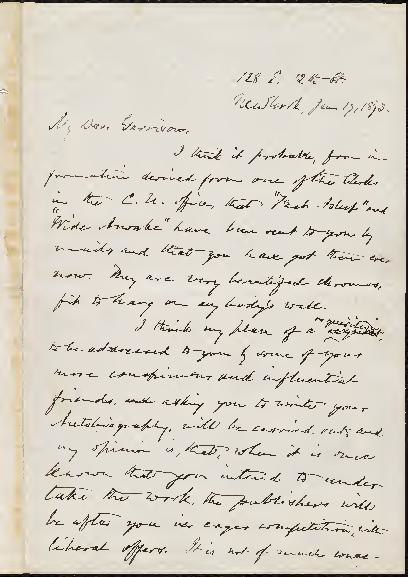 128 E. 12th St.
New York, Jan 17, 1873.
My Dear Garrison,
I think it probable, from in-
formation derived from one of the Clerks
in the C. U. office, that "Fast Asleep" and
"Wide Awake" have been sent to you by
mail, and that you have got them ere
now. They are very beautiful chromos,
fit to hang on anybody's wall.
I think my plan of a requisition,
to be addressed to you by some of your
more conspicuous and influential
friends, and asking you to write your
Autobiography, will be carried out; and
my opinion is, that, when it is once
known that you intend to under-
take the work, the publishers will
be after you in eager competition, with
liberal offers. It is not of much conse-